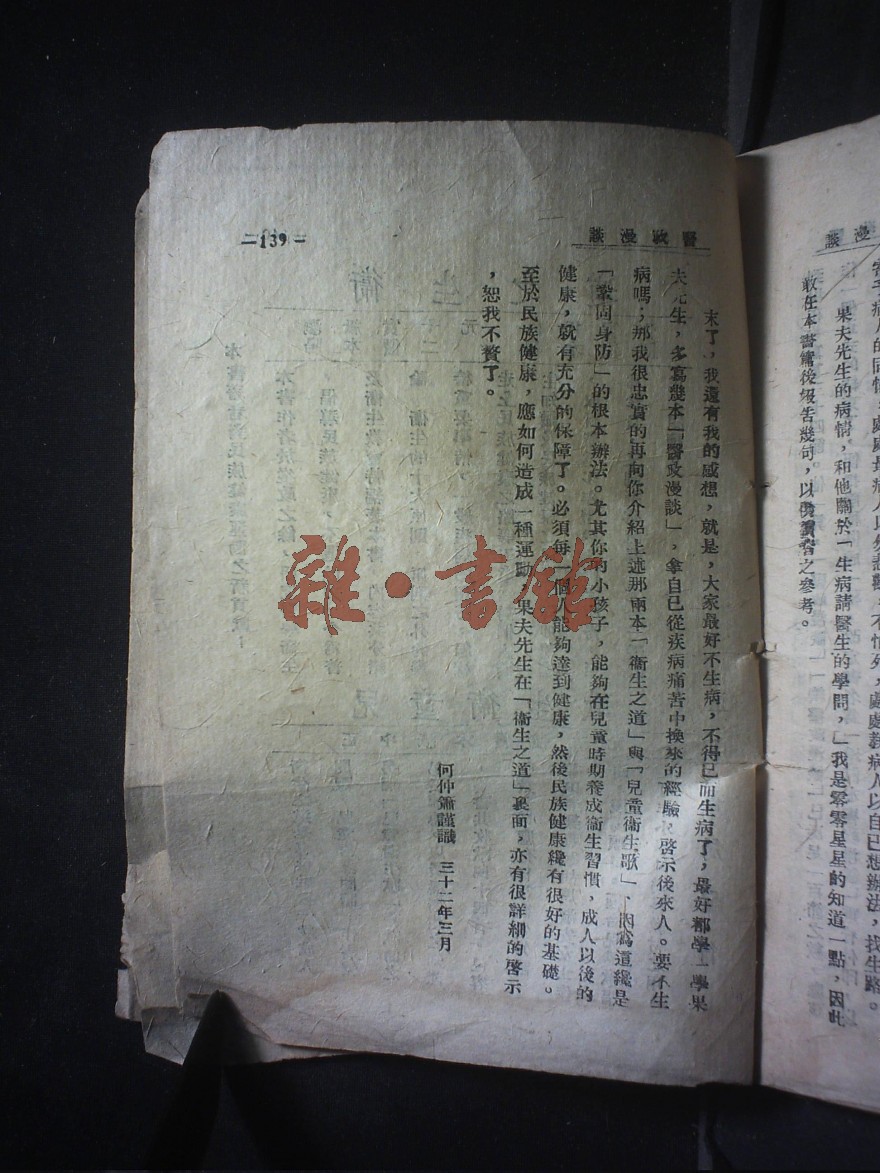 敢任本書讎後報告幾句，以供讀者之參考。
果夫先生的病情，和他關於「生病請醫生的學問，」我是零零星星的知道一點，因此
醫政漫談
—139—
末了，我還有我的感想，就是，大家最好不生病，不得已而生病了，最好都學一學果
夫先生，多寫幾本「醫政漫談」，拿自己從疾病痛苦中換來的經驗，啓示後來人。要不生
病嗎；那我很忠實的再向你介紹上述那兩本「衞生之道」與「兒童衞生歌」，因爲這纔是
「鞏固身防」的根本辦法。尤其你的小孩子，能夠在兒童時期養成衞生習慣，成人以後的
健康，就有充分的保障了。必須每一個人能夠達到健康，然後民族健康纔有很好的基礎。
至於民族健康，應如何造成一種運動，果夫先生在「衞生之道」裏面，亦有很詳細的啓示
，恕我不贅了。
何仲簫謹識　三十二年三月
雜·書館